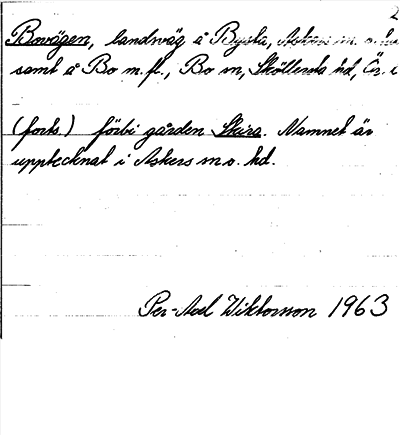 2
Bovägen, landsväg å Bysta, Askers sn. o. hd
samt å Bo m. fl., Bo sn, Sköllersta hd, Ör. l
(forts.) förbi gården Skira. Namnet är
upptecknat i Askers sn o. hd.
Per-Axel Wiktorsson 1963